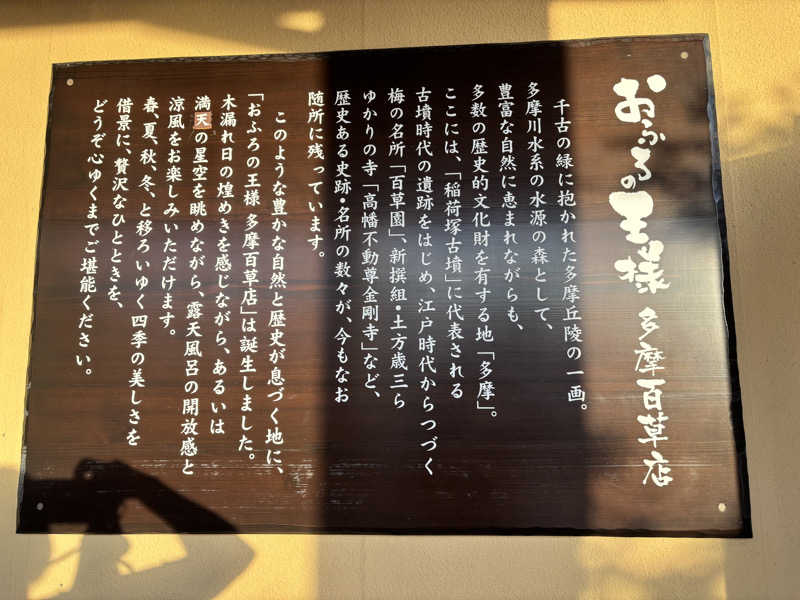 おふろの王様 多摩百草店
千古の緑に抱かれた多摩丘陵の一画。
多摩川水系の水源の森として、
豊富な自然に恵まれながらも、
多数の歴史的文化財を有する地「多摩」。
ここには、「稲荷塚古墳」に代表される
古墳時代の遺跡をはじめ、江戸時代からつづく
梅の名所「百草園」、新撰組・土方歳三ら
ゆかりの寺「高幡不動尊金剛寺」など、
歴史ある史跡・名所の数々が、今もなお
随所に残っています。
このような豊かな自然と歴史が息づく地に、
「おふろの王様 多摩百草店」は誕生しました。
木漏れ日の煌めきを感じながら、あるいは
満天の星空を眺めながら、露天風呂の開放感と
涼風をお楽しみいただけます。
春、夏、秋、冬、と移ろいゆく四季の美しさを
借景に、贅沢なひとときを、
どうぞ心ゆくまでご堪能ください。